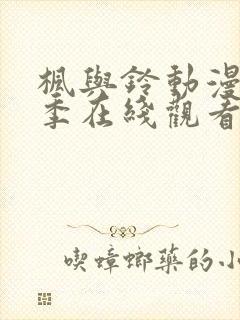 楓與鈴動漫
季在綫觀看
喫蟑螂藥的小